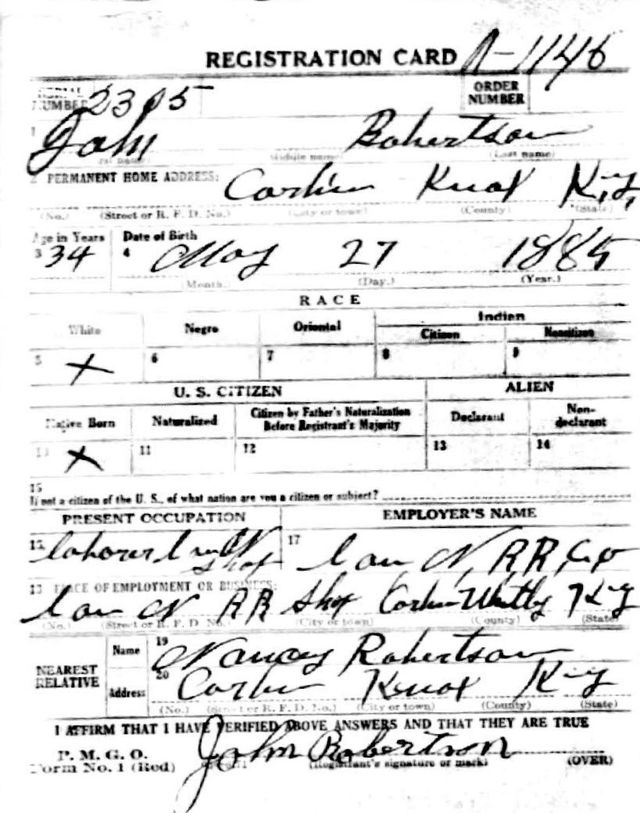 REGISTRATION CARD A-1146
SERIAL NUMBER 2305 ORDER NUMBER
1 John Robertson
(First name) (Middle name) (Last name)
2 PERMANENT HOME ADDRESS: Corbin Knox Ky,
(No.) (Street or R. F. D. No.) (City or town) (County) (State)
Age in Years Date of Birth
3 34 4 May 27 1885
(Month.) (Day.) (Year.)
RACE
White Negro Oriental Indian
Citizen Noncitizen
5 X 6 7 8 9
U. S. CITIZEN ALIEN
Native Born Naturalized Citizen by Father's Naturalization Before Registrant's Majority Declarant Non-declarant
10 X 11 12 13 14
15
If not a citizen of the U. S., of what nation are you a citizen or subject?
PRESENT OCCUPATION EMPLOYER'S NAME
16 laborer Shop 17 N, RR, Co
18 PLACE OF EMPLOYMENT OR BUSINESS:
N RR Shop Corbin Whitley Ky
(No.) (Street or R. F. D. No.) (City or town) (County) (State)
NEAREST RELATIVE Name 19 Nancy Robertson
Address 20 Corbin Knox Ky
(No.) (Street or R. F. D. No.) (City or town) (County) (State)
I AFFIRM THAT I HAVE VERIFIED ABOVE ANSWERS AND THAT THEY ARE TRUE
P. M. G. O.
Form No. 1 (Red) John Robertson
(Registrant's signature or mark) (OVER)